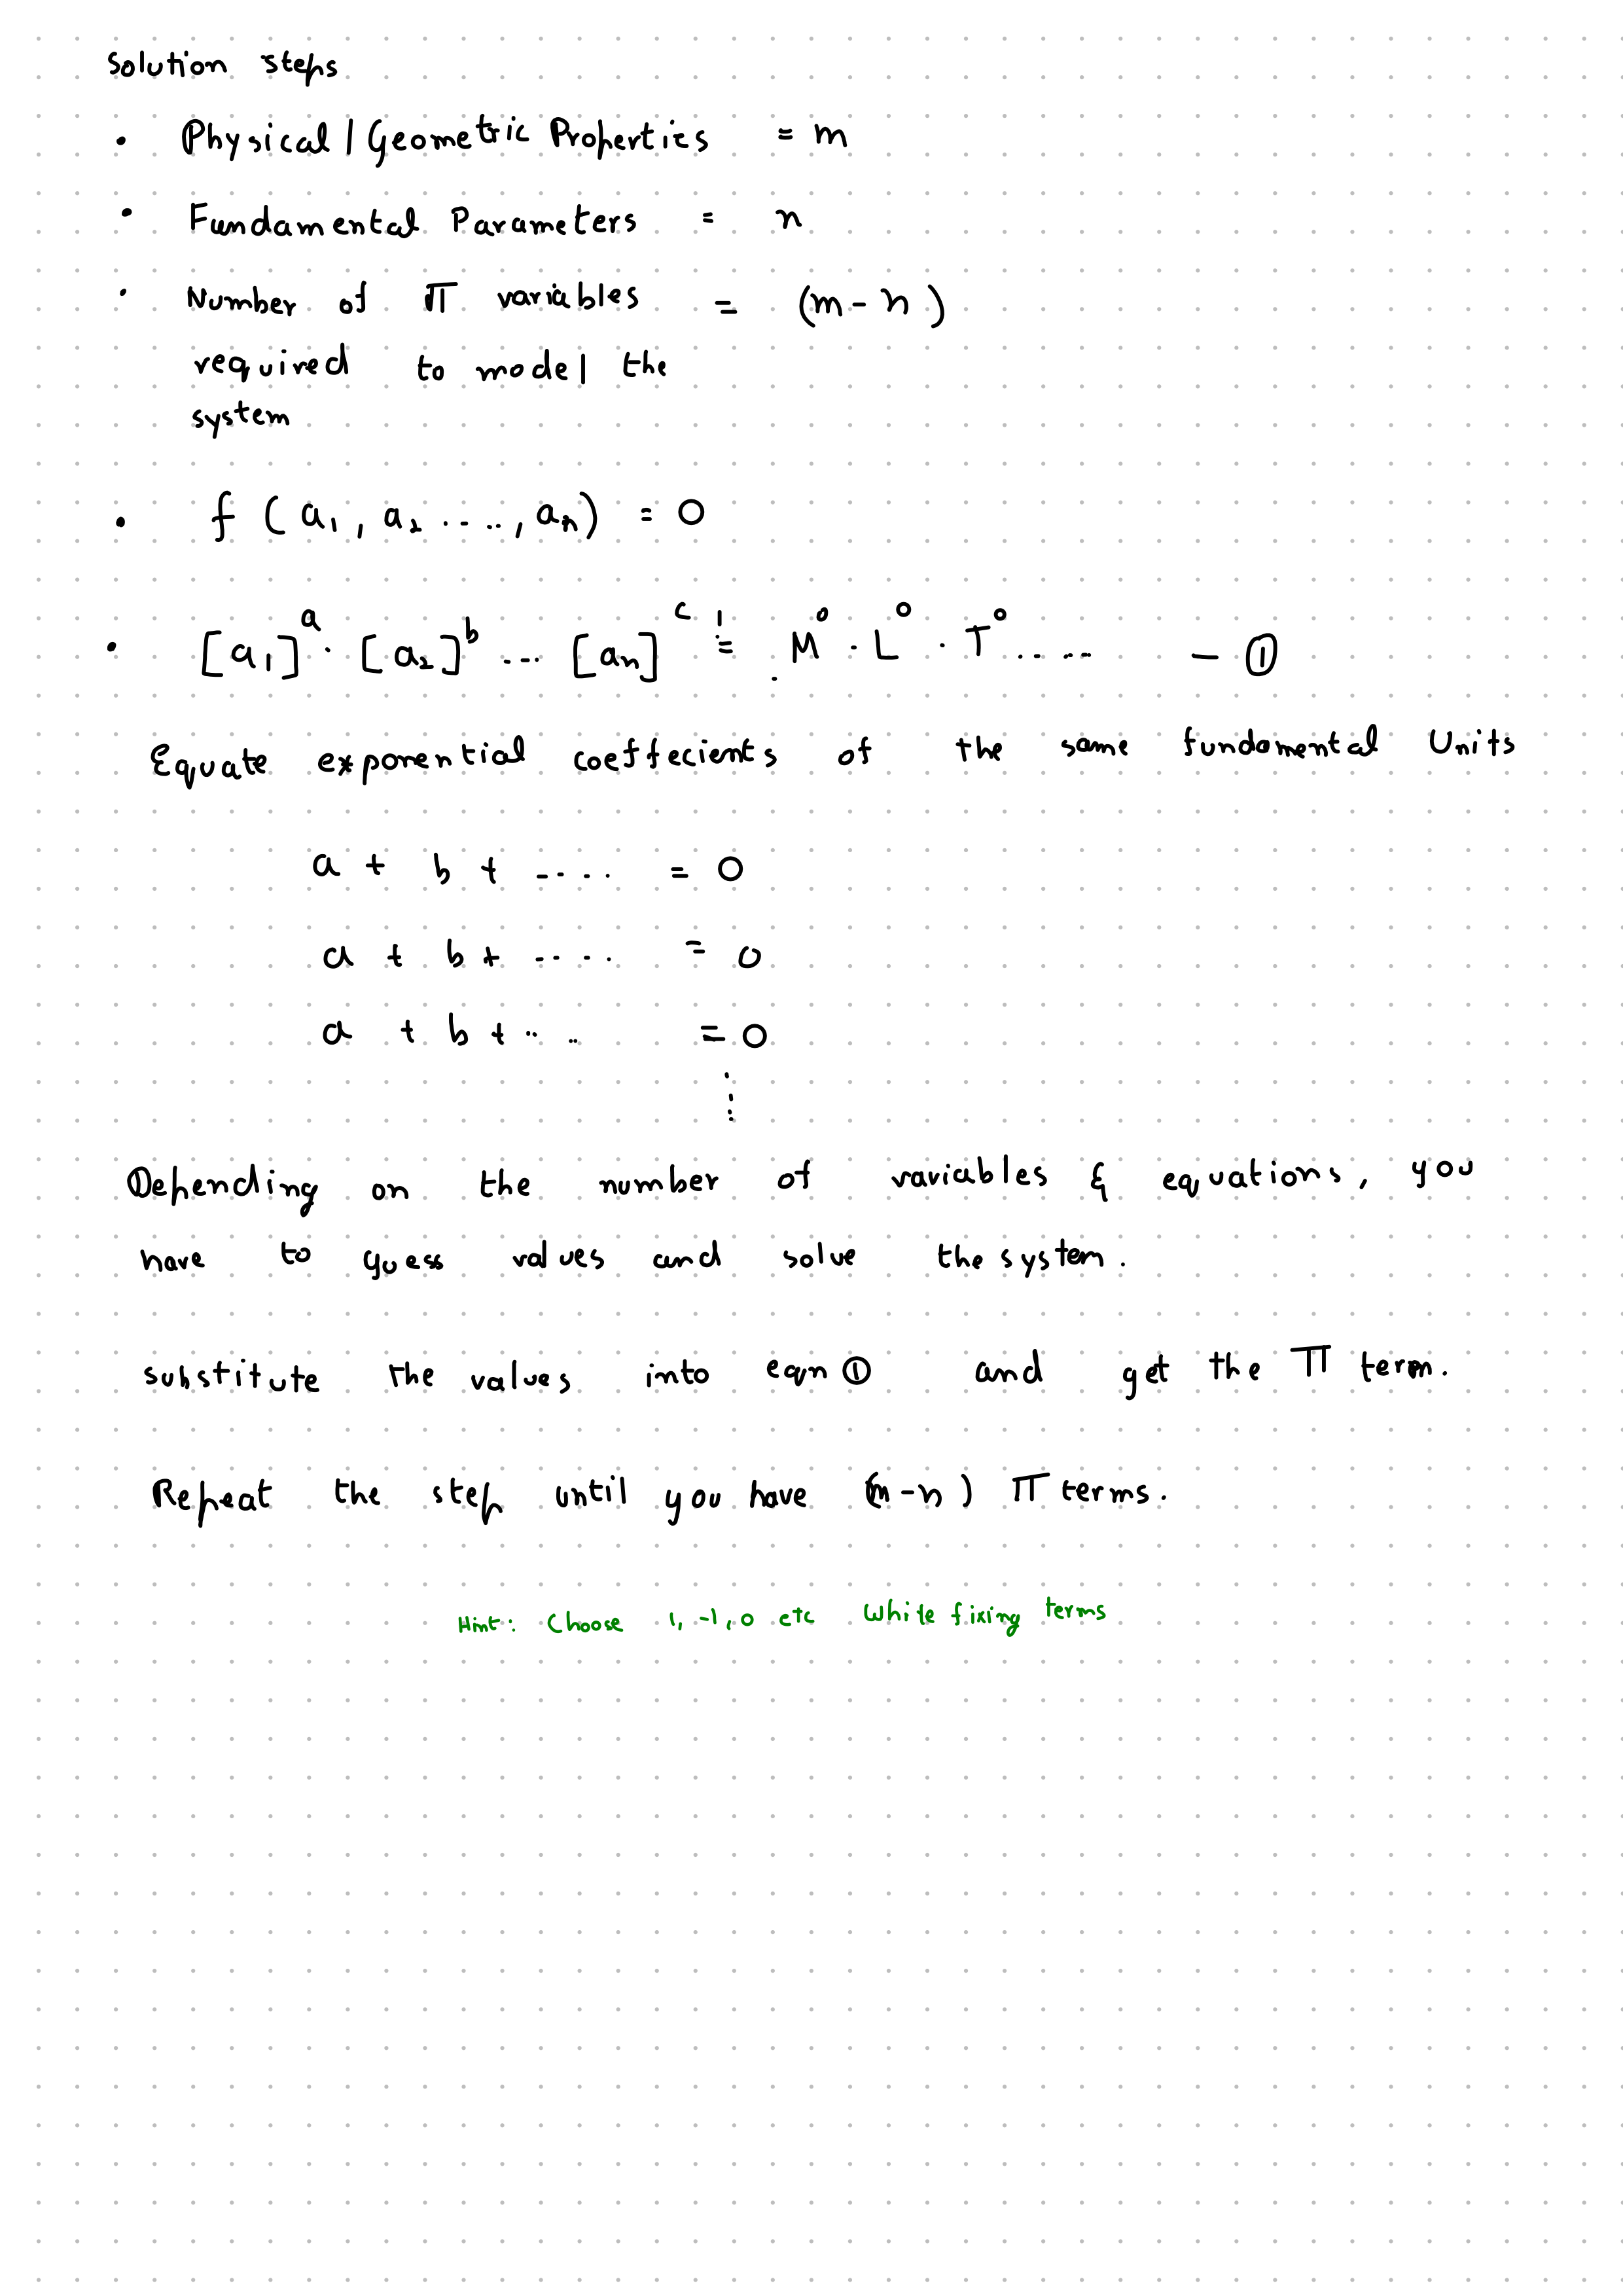 Solution steps
• Physical / Geometric Properties = m
• Fundamental Parameters = n
• Number of π variables = (m - n)
required to model the
system
• f (a₁, a₂ ....., aₙ) = 0
• [a₁]ᵃ · [a₂]ᵇ .... [aₙ]ᶜ != M⁰ · L⁰ · T⁰ ..... - ①
Equate exponential coeffecients of the same fundamental Units
a + b + .... = 0
a + b + .... = 0
a + b + .... = 0
⋮
Depending on the number of variables & equations, you
have to guess values and solve the system.
substitute the values into eqn ① and get the π term.
Repeat the step until you have (m-n) π terms.
Hint: Choose 1, -1, 0 etc While fixing terms